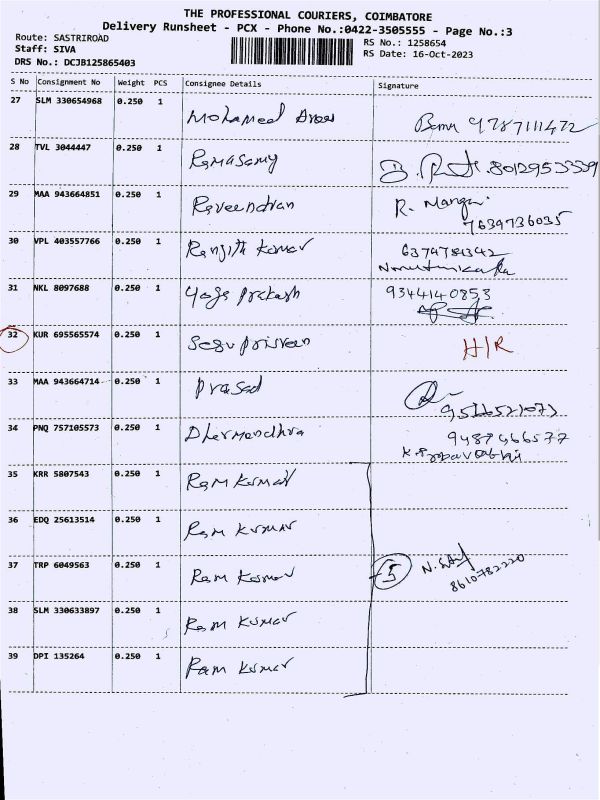 THE PROFESSIONAL COURIERS, COIMBATORE
Delivery Runsheet - PCX - Phone No.:0422-3505555 - Page No.:3
Route: SASTRIROAD
Staff: SIVA
DRS No.: DCJB125865403
RS No.: 1258654
RS Date: 16-Oct-2023
S No Consignment No Weight PCS Consignee Details Signature
27 SLM 330654968 0.250 1 Mohamed 9787111472
28 TVL 3044447 0.250 1 Ramasamy 8012953339
29 MAA 943664851 0.250 1 Raveendran R. Manga
7639736035
30 VPL 403557766 0.250 1 Ranjith Kumar 6379781342
31 NKL 8097688 0.250 1 Yoga Prakash 9344140853
32 KUR 695565574 0.250 1 H/R
33 MAA 943664714 0.250 1 Prasad
34 PNQ 757105573 0.250 1 Dharmendhra 9487466577
35 KRR 5807543 0.250 1 Ram Kumar
36 EDQ 25613514 0.250 1 Ram Kumar
37 TRP 6049563 0.250 1 Ram Kumar 5 8610782220
38 SLM 330633897 0.250 1 Ram Kumar
39 DPI 135264 0.250 1 Ram Kumar